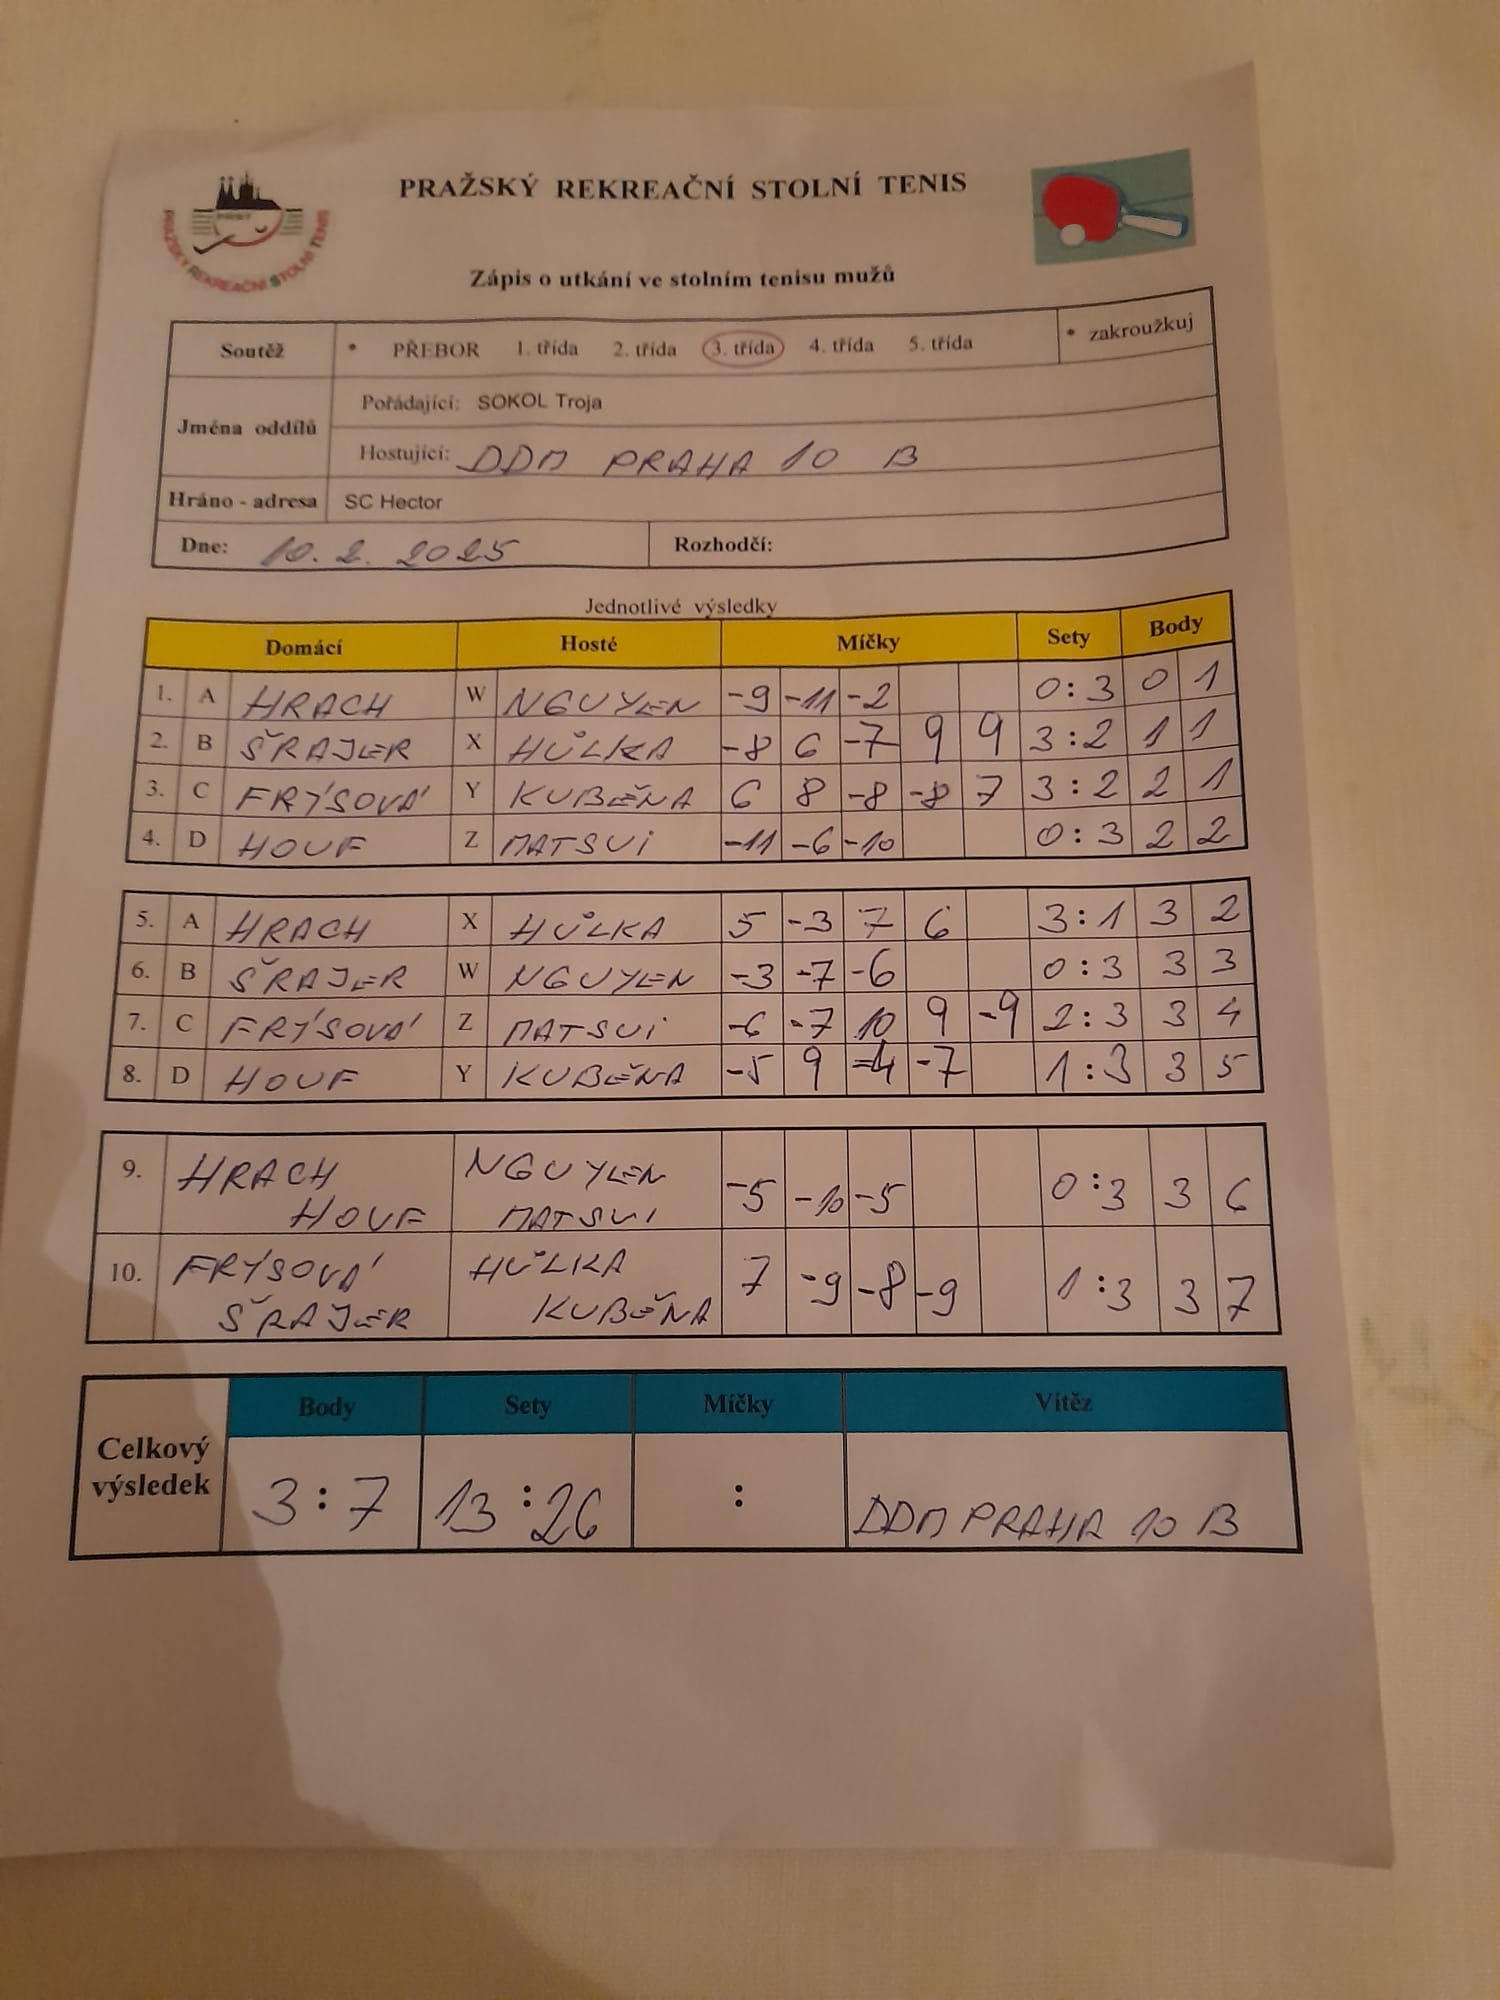 PRAŽSKÝ REKREAČNÍ STOLNÍ TENIS
PRAŽSKÝ REKREAČNÍ STOLNÍ TENIS
Zápis o utkání ve stolním tenisu mužů
Soutěž * PŘEBOR 1. třída 2. třída 3. třída 4. třída 5. třída * zakroužkuj
Jména oddílů
Pořádající: SOKOL Troja
Hostující: DDM PRAHA 10 B
Hráno - adresa SC Hector
Dne: 10. 2. 2025 Rozhodčí:
Jednotlivé výsledky
Domácí Hosté Míčky Sety Body
1. A HRACH W NGUYLEN -9 -11 -2 0:3 0 1
2. B ŠRAJER X HŮLKA -8 6 -7 9 9 3:2 1 1
3. C FRÝSOVÁ Y KUBĚNA 6 8 -8 -8 7 3:2 2 1
4. D HOUF Z MATSUI -11 -6 -10 0:3 2 2
5. A HRACH X HŮLKA 5 -3 7 6 3:1 3 2
6. B ŠRAJER W NGUYLEN -3 -7 -6 0:3 3 3
7. C FRÝSOVÁ Z MATSUI -6 -7 10 9 -9 2:3 3 4
8. D HOUF Y KUBĚNA -5 9 -4 -7 1:3 3 5
9. HRACH NGUYLEN -5 -10 -5 0:3 3 6
HOUF MATSUI
10. FRÝSOVÁ HŮLKA 7 -9 -8 -9 1:3 3 7
ŠRAJER KUBĚNA
Celkový výsledek
Body Sety Míčky Vítěz
3:7 13:26 : DDM PRAHA 10 B